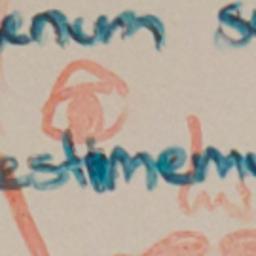 enum s
estimem